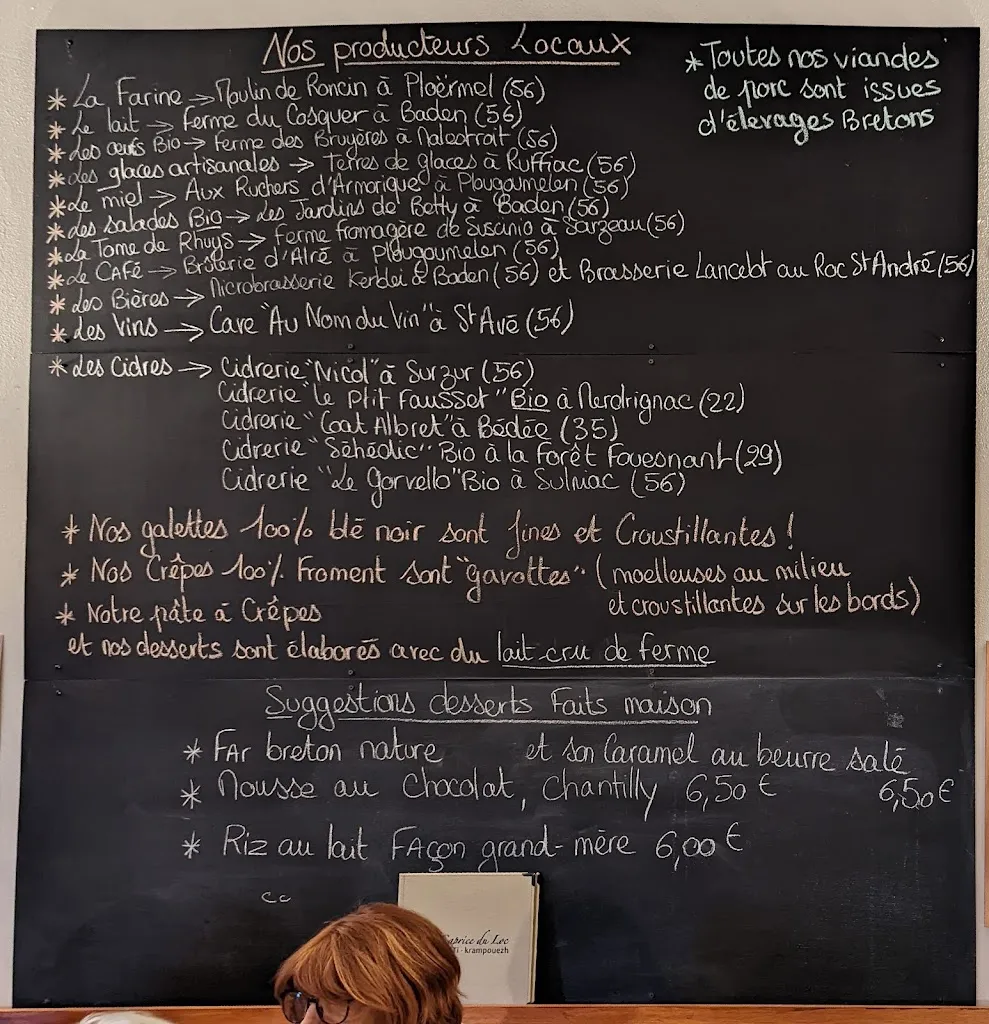 Nos producteurs Locaux
* La Farine → Moulin de Roncin à Ploërmel (56)
* Le lait → Ferme du Cosquer à Baden (56)
* Les œufs Bio → Ferme des Bruyères à Malestroit (56)
* Les glaces artisanales → Terres de glaces à Ruffiac (56)
* Le miel → Aux Ruchers d'Armorique à Plougoumelen (56)
* Les salades Bio → Les Jardins de Betty à Baden (56)
* La Tome de Rhuys → Ferme fromagère de Suscinio à Sarzeau (56)
* Le CAFé → Brûlerie d'Alré à Plougoumelen (56)
* Les Bières → Microbrasserie Kerdoi à Baden (56) et Brasserie Lancelot au Roc St André (56)
* Les Vins → Cave "Au Nom du Vin" à St Avé (56)
* Toutes nos viandes
de porc sont issues
d'élevages Bretons
* Les Cidres → Cidrerie "Nicol" à Surzur (56)
Cidrerie "Le Ptit Fausset" Bio à Merdrignac (22)
Cidrerie "Coat Albret" à Bédée (35)
Cidrerie "Séhédic" Bio à la Forêt Fouesnant (29)
Cidrerie "Le Gorvello" Bio à Sulniac (56)
* Nos galettes 100% blé noir sont fines et Croustillantes !
* Nos Crêpes 100% Froment sont "gavottes" (moelleuses au milieu
et croustillantes sur les bords)
* Notre pâte à Crêpes
et nos desserts sont élaborés avec du lait cru de ferme
Suggestions desserts Faits maison
* FAr breton nature et son Caramel au beurre salé
6,50 €
* Mousse au Chocolat, Chantilly 6,50 €
* Riz au lait FAçon grand-mère 6,00 €
cc
Caprice du Loc
Ti - krampouezh